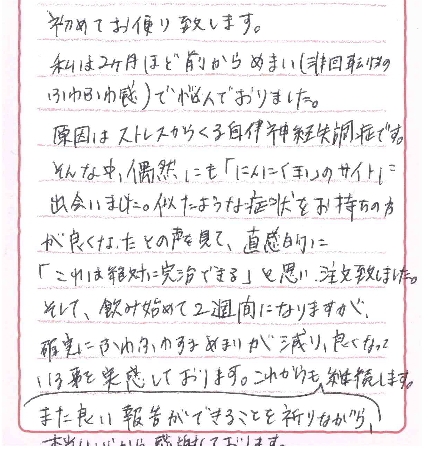 初めてお便り致します。
私は2ヶ月ほど前からめまい(非回転性の
ふわふわ感)で悩んでおりました。
原因はストレスからくる自律神経失調症です。
そんな中、偶然にも「にんにく玉」のサイトに
出会いました。似たような症状をお持ちの方
が良くなったとの声を見て、直感的に
「これは絶対に完治できる」と思い、注文致しました。
そして、飲み始めて2週間になりますが、
確実にふわふわするめまいが減り、良くなって
いる事を実感しております。これからも継続します。
また良い報告ができることを祈りながら、
感謝しております。